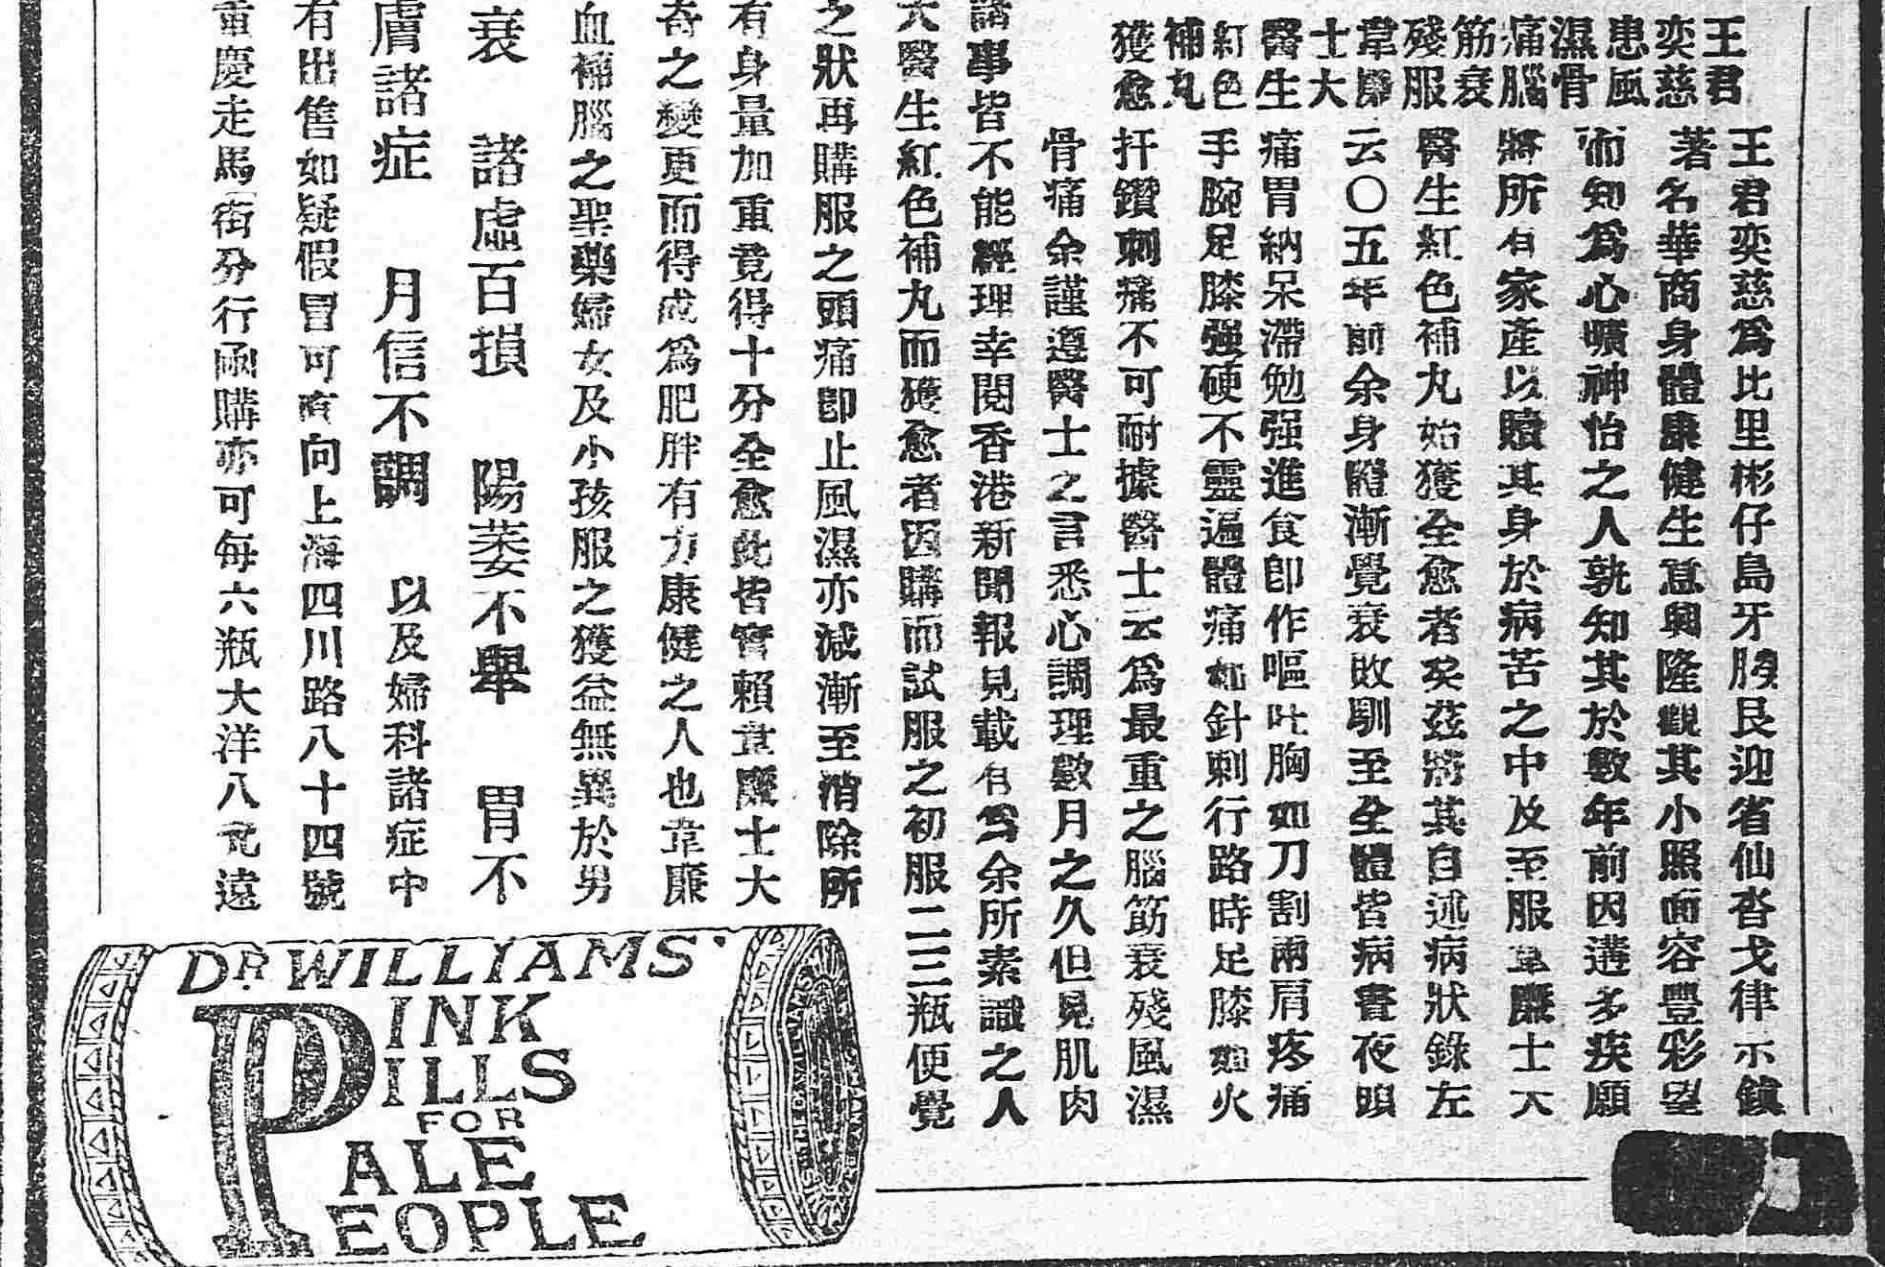 王君
奕慈
患風
濕骨
痛腦
筋衰
殘服
韋廉
士大
醫生
紅色
補丸
獲愈
王君奕慈爲比里彬仔島牙朥艮迎省仙沓戈律示鎮
著名華商身體康健生意興隆觀其小照面容豐彩望
而知爲心曠神怡之人孰知其於數年前因遘多疾願
將所有家產以贖其身於病苦之中及至服韋廉士大
醫生紅色補丸始獲全愈者矣茲將其自述病狀錄左
云〇五年前余身體漸覺衰敗馴至全體皆病晝夜頭
痛胃納呆滯勉强進食卽作嘔吐胸如刀割兩肩疼痛
手腕足膝强硬不靈遍體痛如針刺行路時足膝如火
扦鑽刺痛不可耐據醫士云爲最重之腦筋衰殘風濕
骨痛余謹遵醫士之言悉心調理數月之久但見肌肉
諸事皆不能經理幸閱香港新聞報見載有爲余所素識之人
大醫生紅色補丸而獲愈者因購而試服之初服二三瓶便覺
之狀再購服之頭痛卽止風濕亦减漸至消除所
有身量加重竟得十分全愈此皆實賴韋廉士大
奇之變更而得成爲肥胖有力康健之人也韋廉
血補腦之聖藥婦女及小孩服之獲益無異於男
衰 諸虛百損 陽萎不舉 胃不
膚諸症 月信不調 以及婦科諸症中
有出售如疑假冒可直向上海四川路八十四號
重慶走馬街分行函購亦可每六瓶大洋八元遠
DR WILLIAMS'
PINK
PILLS
FOR
PALE
PEOPLE